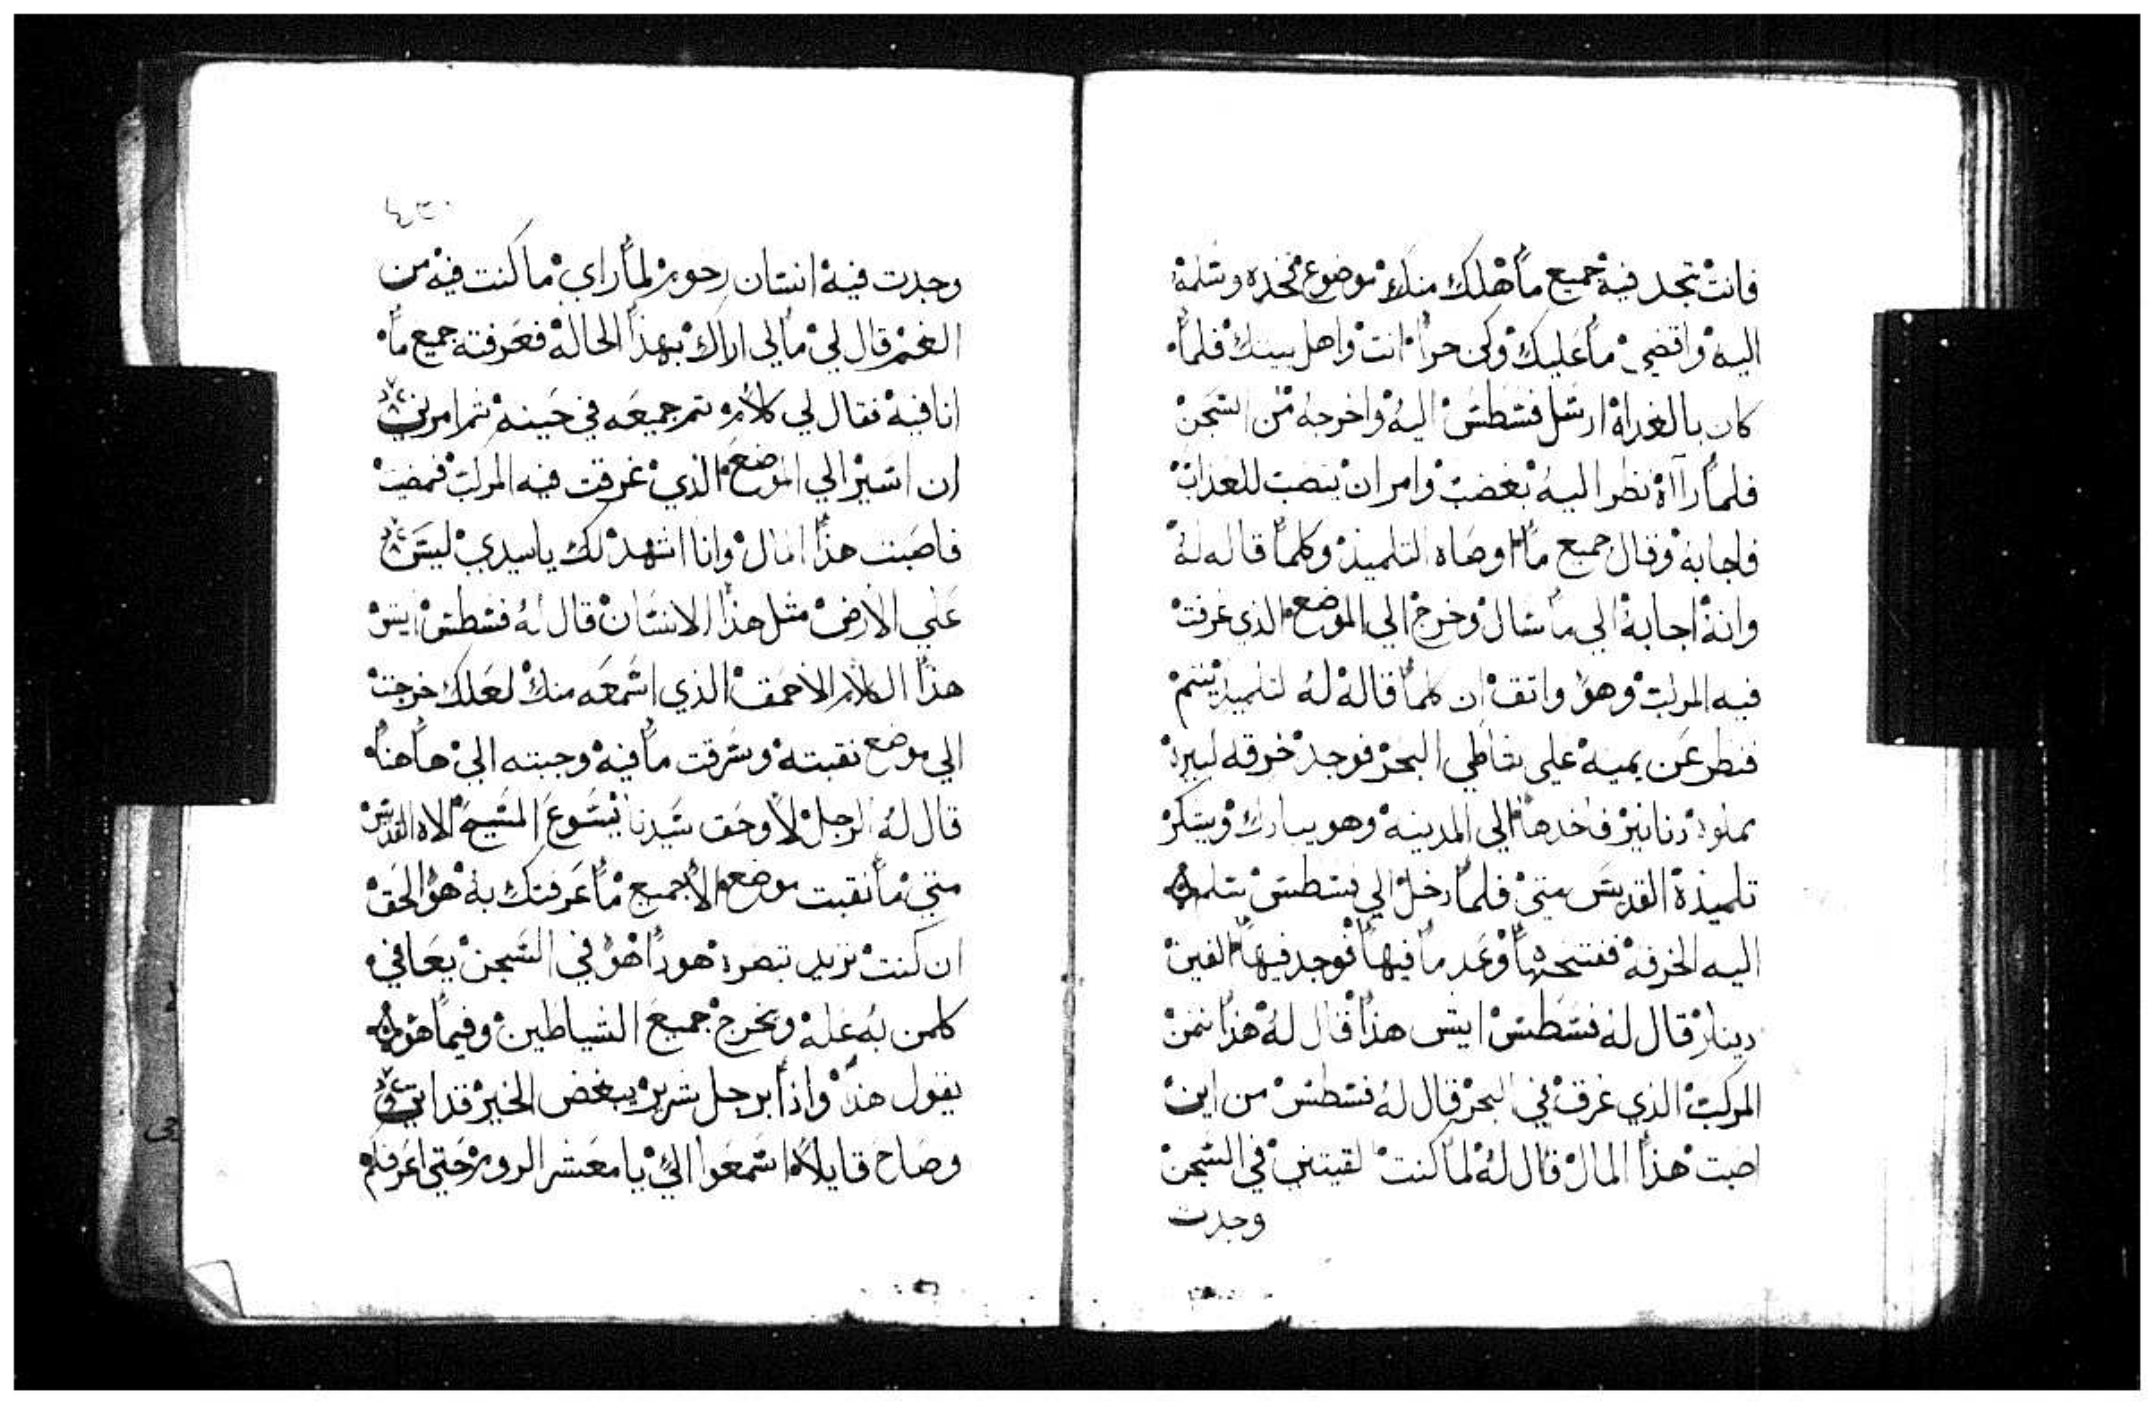 فانت تجد فيه جميع ما هلك منك موضوع فخده وسلمه
اليه واقضي ما عليك وكن حرا انت واهل بيتك فلما
كان بالغداه ارسل فسطس اليه واخرجه من السجن
فلما رااه نظر اليه بغضب وامر ان ينصب للعذاب
فاجابه وقال جميع ما اوصاه التلميذ وكلما قاله له
وانه اجابه الي ما سال وخرج الي الموضع الذي غرقت
فيه المركب وهو واتق ان كلما قاله له التلميذ يتم
فنظر عن يمينه علي شاطي البحر فوجد خرقه كبيره
مملوه دنانير فاخدها الي المدينه وهو يبارك ويشكر
تلميذه القديس متي فلما دخل الي فسطس سلم
اليه الخرقه ففتحها وعد ما فيها فوجد فيها الفين
دينار قال له فسطس ايش هذا قال له هذا تمن
المركب الذي غرق في البحر قال له فسطس من اين
اصبت هذا المال قال له لما كنت لقيتني في السجن
وجدت
وجدت فيه انسان رحوم لما راي ما كنت فيه من
الغم قال لي ما لي اراك بهذا الحاله فعرفته جميع ما
انا فيه فقال لي كلام تم جميعه في حينه تم امرني
ان اسير الي الموضع الذي غرقت فيه المركب فمضيت
فاصبت هذا المال وانا اشهد لك ياسيدي ليس
علي الارض متل هذا الانسان قال له فسطس ايش
هذا الكلام الاحمق الذي اسمعه منك لعلك خرجت
الي موضع نقبته وسرقت ما فيه وجبته الي هاهنا
قال له الرجل لا وحق سيدنا يسوع المسيح الاه القديس
متي ما نقبت موضع الا جميع ما عرفتك به هو الحق
ان كنت تريد تبصره هودا هو في السجن يعافي
كلمن به عله ويخرج جميع الشياطين وفيما هو
يقول هذا واذا برجل شرير يبغض الخير قد اتي
وصاح قايلا اسمعوا الي يا معشر الروم حتي اعرفكم